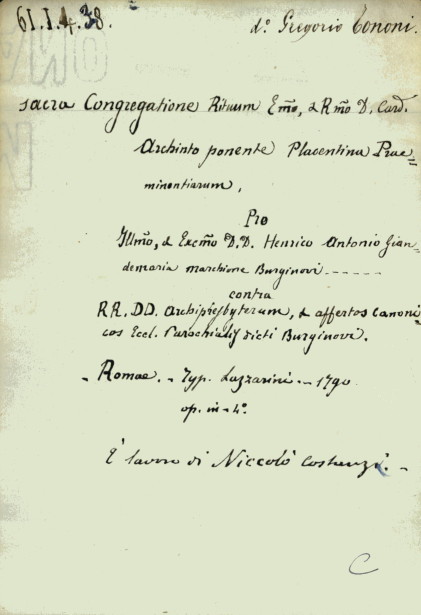 61.I.4.38.
d.º Gregorio Cononi.
sacra Congregatione Rituum Emo, & Rmo D. Card.
Archinto ponente Placentina Prae=
minentiarum,
Pro
Illmo, & Excmo D.D. Henrico Antonio Gian=
demaria marchione Burginovi ------
contra
RR. DD. Archipresbyterum, & assertos canoni
cos Eccl. Parochialis dicti Burginovi.
- Romae. - Typ. Lazzarini. - 1790
op. in-4º.
È lavoro di Niccolò Costanzi. -
C